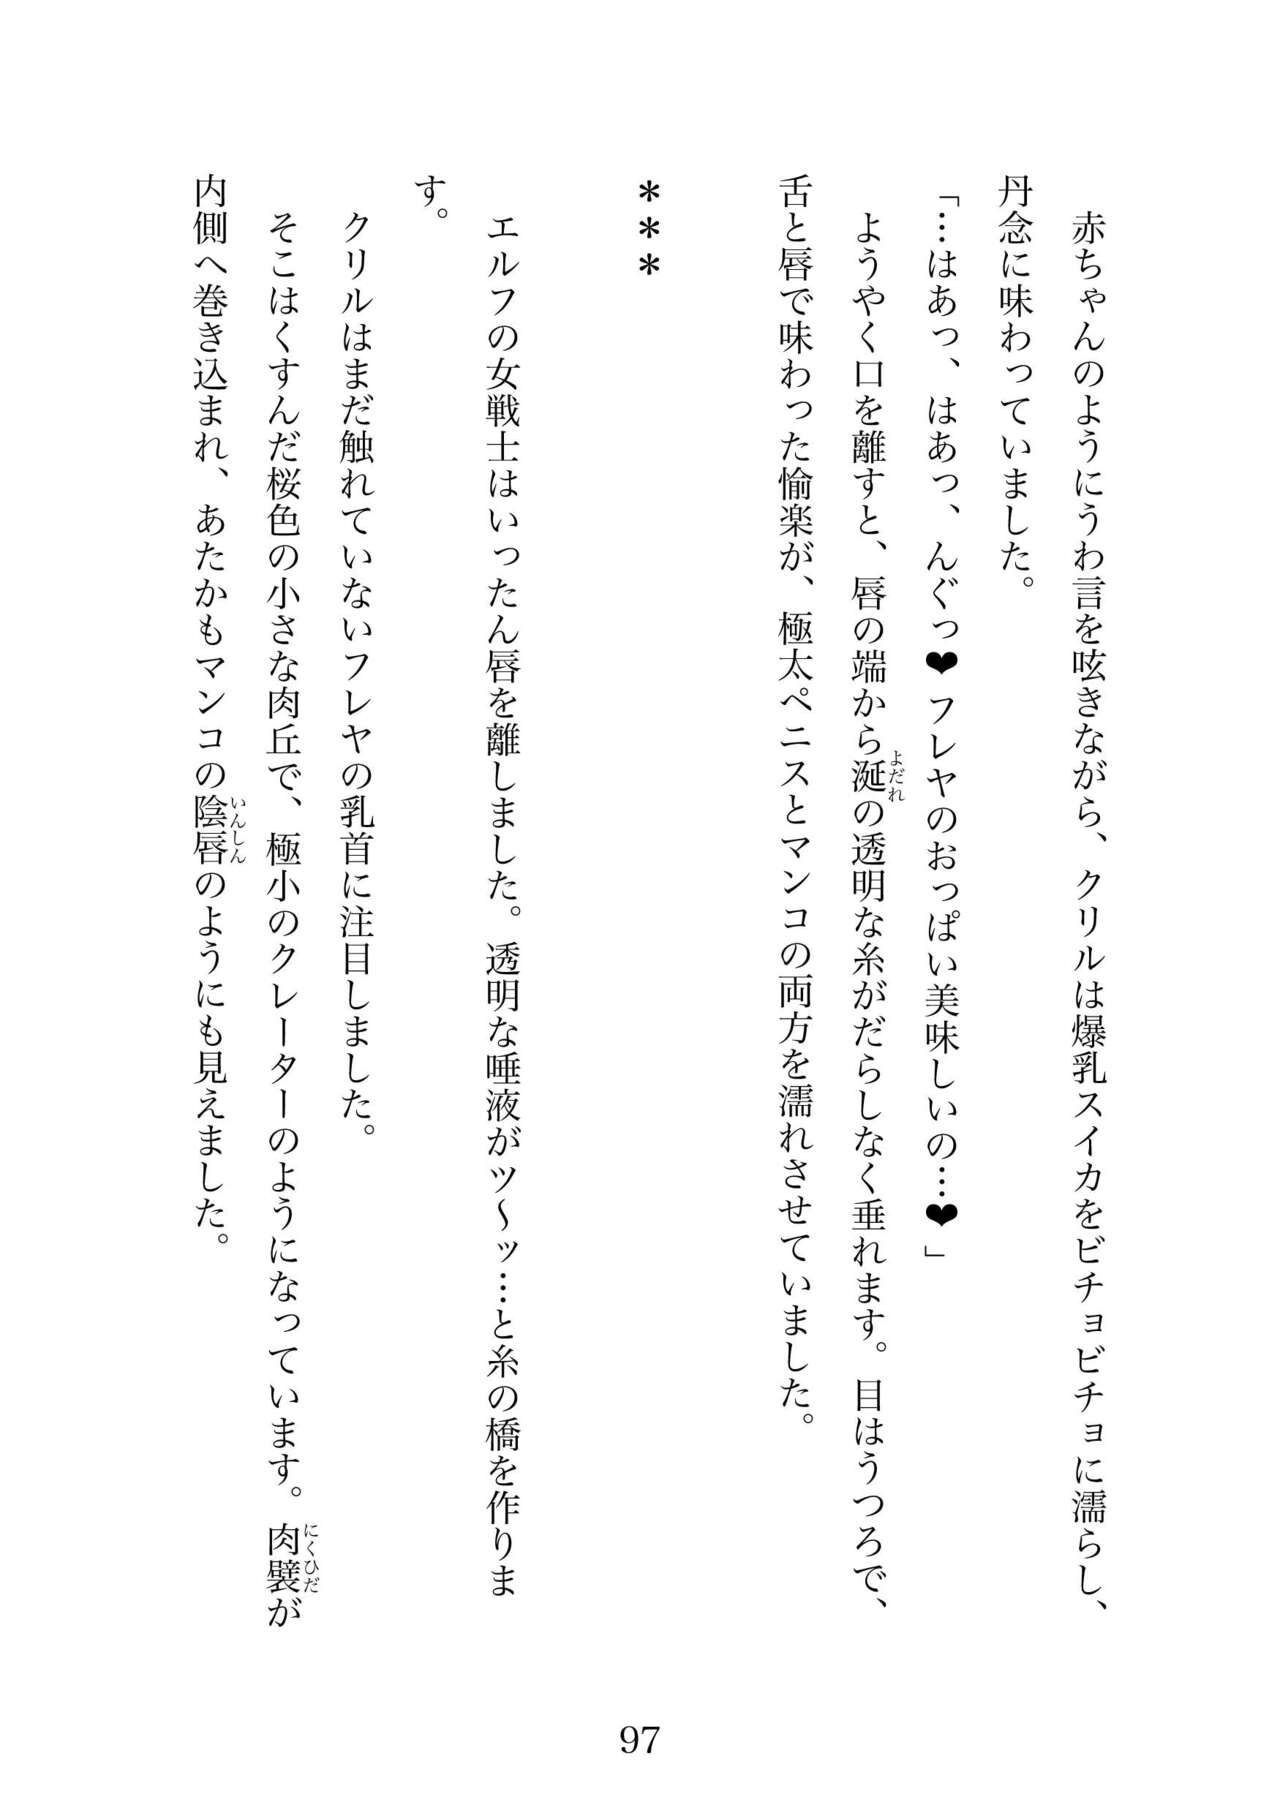 赤ちゃんのようにうわ言を呟きながら、クリルは爆乳スイカをビチョビチョに濡らし、
丹念に味わっていました。
「…はあっ、はあっ、んぐっ❤フレヤのおっぱい美味しいの…❤」
ようやく口を離すと、唇の端から涎の透明な糸がだらしなく垂れます。目はうつろで、
よだれ
舌と唇で味わった愉楽が、極太ペニスとマンコの両方を濡れさせていました。
＊＊＊
エルフの女戦士はいったん唇を離しました。透明な唾液がツ～ッ…と糸の橋を作りま
す。
クリルはまだ触れていないフレヤの乳首に注目しました。
そこはくすんだ桜色の小さな肉丘で、極小のクレーターのようになっています。肉襞が
にくひだ
内側へ巻き込まれ、あたかもマンコの陰唇のようにも見えました。
いんしん
97